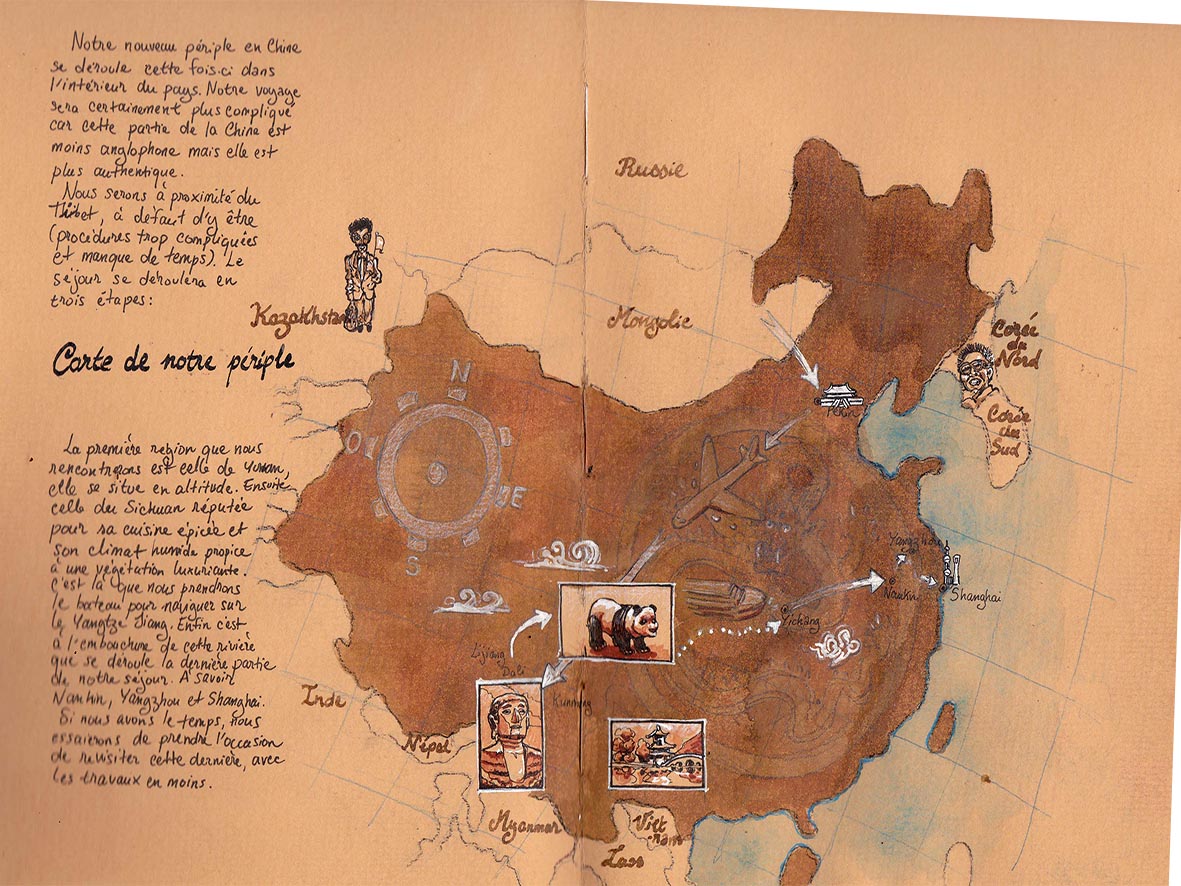 Notre nouveau périple en Chine
se déroule cette fois-ci dans
l'intérieur du pays. Notre voyage
sera certainement plus compliqué
car cette partie de la Chine est
moins anglophone mais elle est
plus authentique.
Nous serons à proximité du
Thibet, à défaut d'y être
(procédures trop compliquées
et manque de temps). Le
séjour se déroulera en
trois étapes:
Carte de notre périple
La première région que nous
rencontrerons est celle de Yunnan,
elle se situe en altitude. Ensuite
celle du Sichuan réputée
pour sa cuisine épicée et
son climat humide propice
à une végétation luxuriante.
C'est là que nous prendrons
le bateau pour naviguer sur
le Yangtze Jiang. Enfin c'est
à l'embouchure de cette rivière
que se déroule la dernière partie
de notre séjour. A savoir
Nankin, Yangzhou et Shanghai.
Si nous avons le temps, nous
essaierons de prendre l'occasion
de revisiter cette dernière, avec
les travaux en moins.
Russie
Kazakhstan
Mongolie
Corée
du
Nord
Corée
du
Sud
N
O
E
S
Pékin
Yangzhou
Nankin
Shanghai
Yichang
Lijiang
Dali
Kunming
Inde
Népal
Myanmar
Viet
nam
Laos